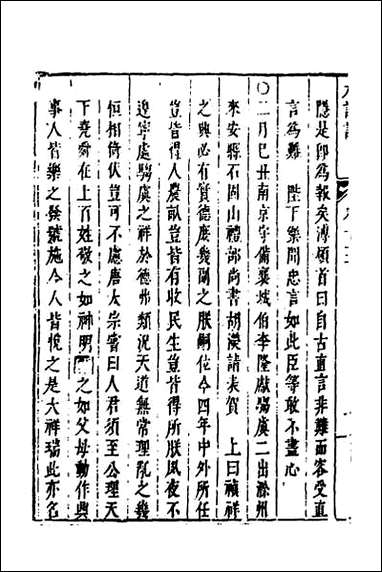 隱是卽爲報矣溥頓首曰自古直言非難而容受直
言爲難 陛下樂聞忠言如此臣等敢不盡心
〇二月巳丑南京守備襄城伯李隆獻騶虞二出滁州
來安縣石固山禮部尚書胡濙請表賀 上曰禎祥
之興必有實德庶幾副之朕嗣位今四年中外所任
豈皆得人農畝豈皆有收民生豈皆得所朕夙夜不
遑寧處騶虞之祥於德弗類況天道無常理亂之幾
恒相倚伏豈可不慮唐太宗嘗曰人君須至公理天
下堯舜在上百姓敬之如神明之如父母動作與
事人皆樂之發號施令人皆悅之是大祥瑞此亦名